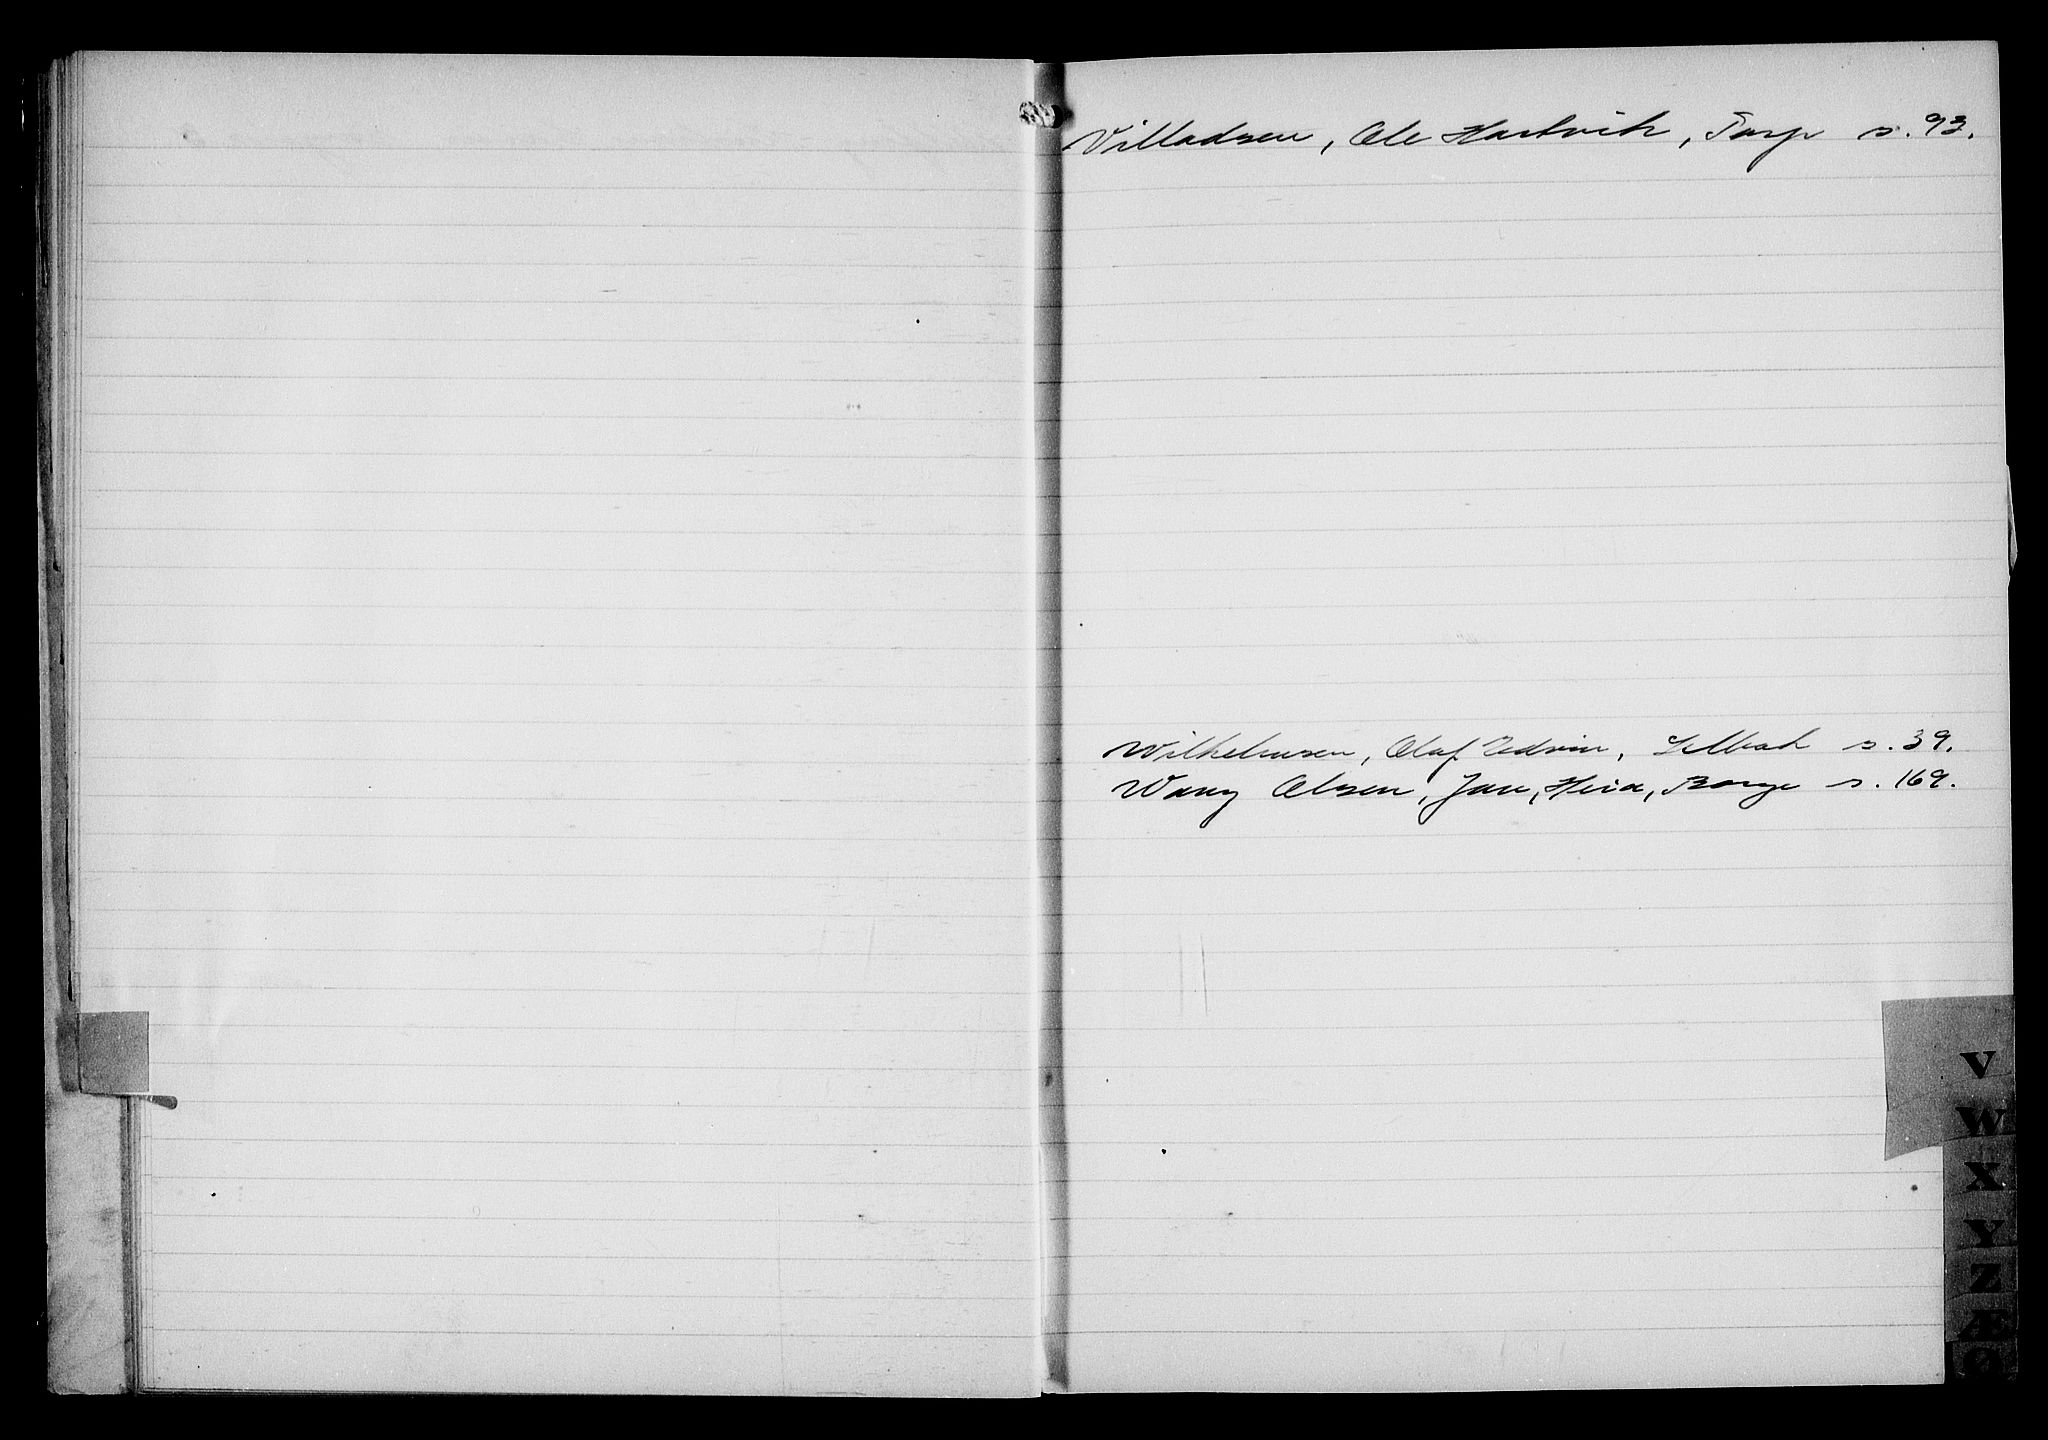 Villadsen, Ole Hartvik, Torp s. 93.
Wilhelmsen, Olaf Edvin, Selbak s. 39.
Wang Olsen, Jan, Heia, Borge s. 169.
V
W
X
Y
Z
Æ
Ø